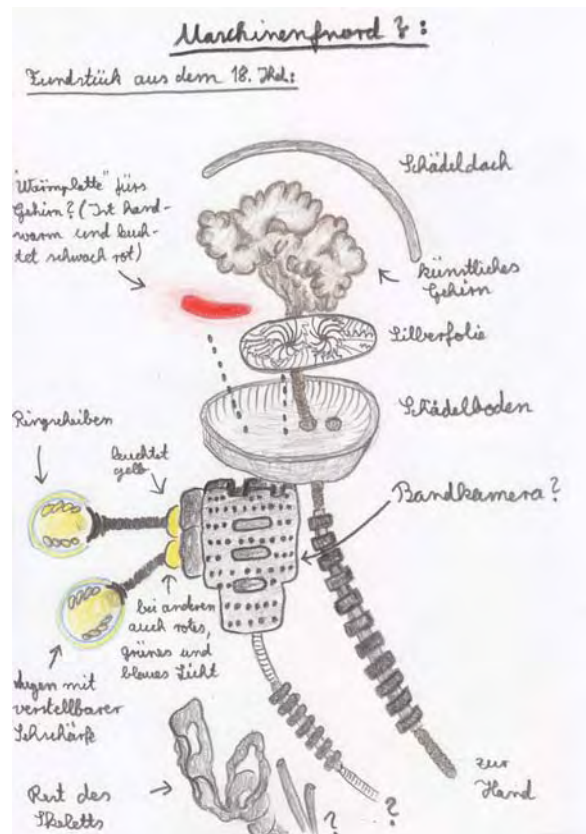 Maschinenfnord ? :
Fundstück aus dem 18. Jhd.:
Schädeldach
"Wärmplatte" fürs
Gehirn? (Ist hand-
warm und leuch-
tet schwach rot)
künstliches
Gehirn
Silberfolie
Schädelboden
Ringscheiben
leuchtet
gelb
Bandkamera?
bei anderen
auch rotes,
grünes und
blaues Licht
Augen mit
verstellbarer
Sehschärfe
Rest des
Skeletts
?
?
zur
Hand